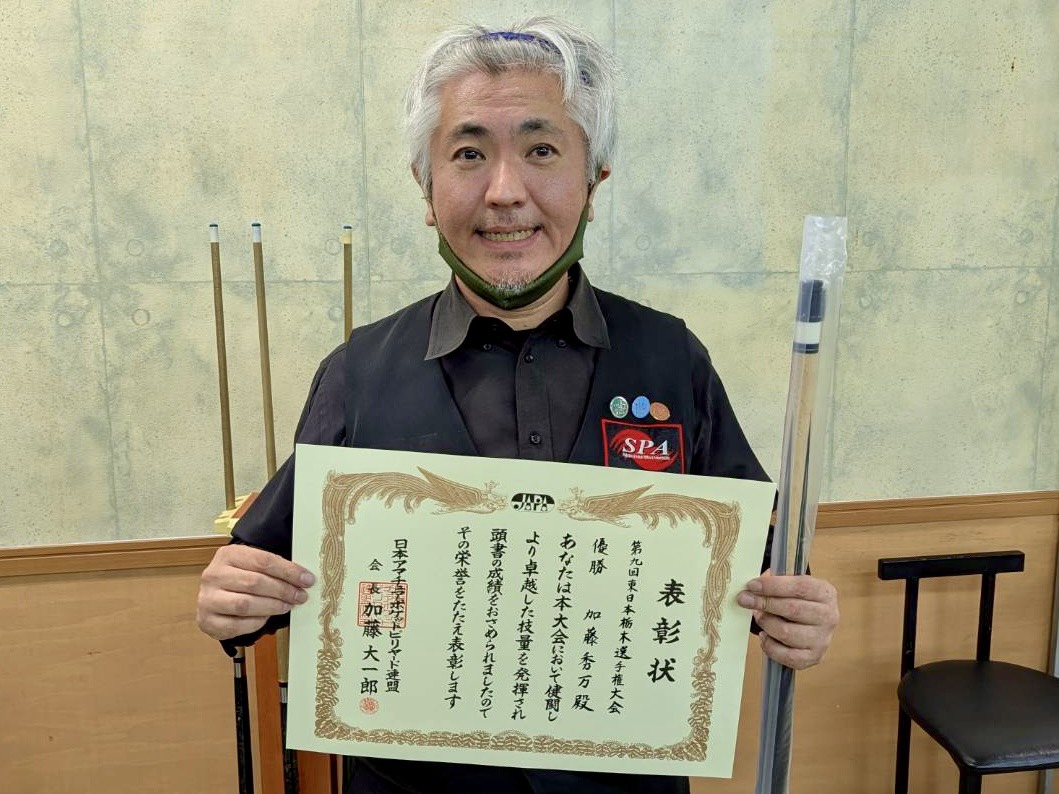 SPA
JAPA
表彰状
第九回東日本栃木選手権大会
優勝 加藤秀万殿
あなたは本大会において健闘し
より卓越した技量を発揮され
頭書の成績をおさめられましたので
その栄誉をたたえ表彰します
日本アマチュアポケットビリヤード連盟
会長 加藤大一郎